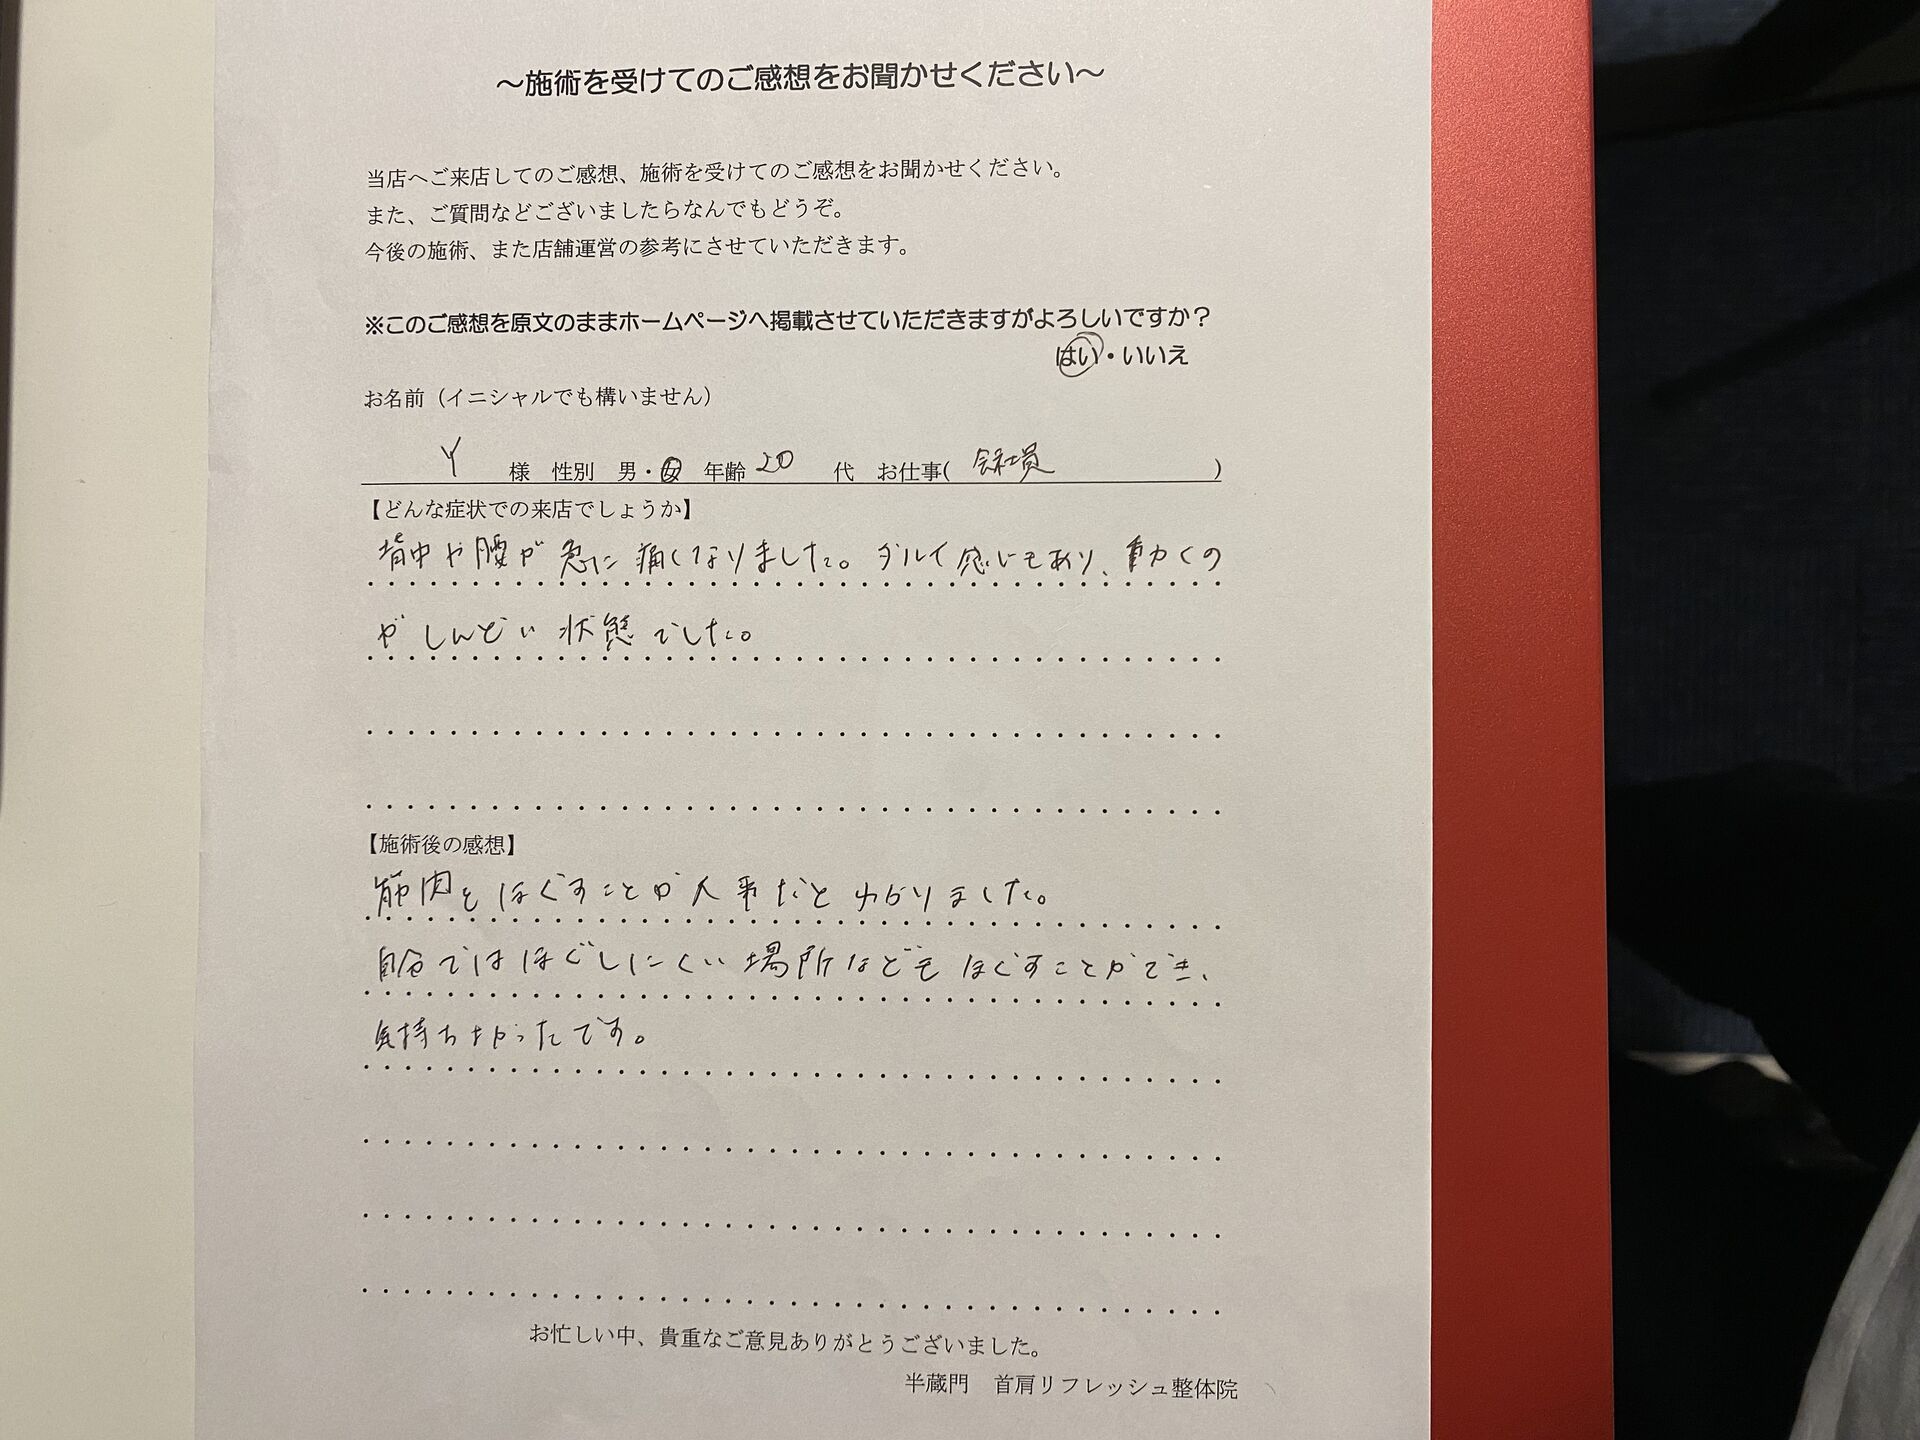 ～施術を受けてのご感想をお聞かせください～
当店へご来店してのご感想、施術を受けてのご感想をお聞かせください。
また、ご質問などございましたらなんでもどうぞ。
今後の施術、また店舗運営の参考にさせていただきます。
※このご感想を原文のままホームページへ掲載させていただきますがよろしいですか？
はい・いいえ
お名前（イニシャルでも構いません）
Y 様 性別 男・女 年齢 20 代 お仕事( 会社員 )
【どんな症状での来店でしょうか】
背中や腰が急に痛くなりました。ダルイ感じもあり、動くの
がしんどい状態でした。
【施術後の感想】
筋肉をほぐすことが大事だとわかりました。
自分ではほぐしにくい場所などもほぐすことができ、
気持ちよかったです。
お忙しい中、貴重なご意見ありがとうございました。
半蔵門 首肩リフレッシュ整体院